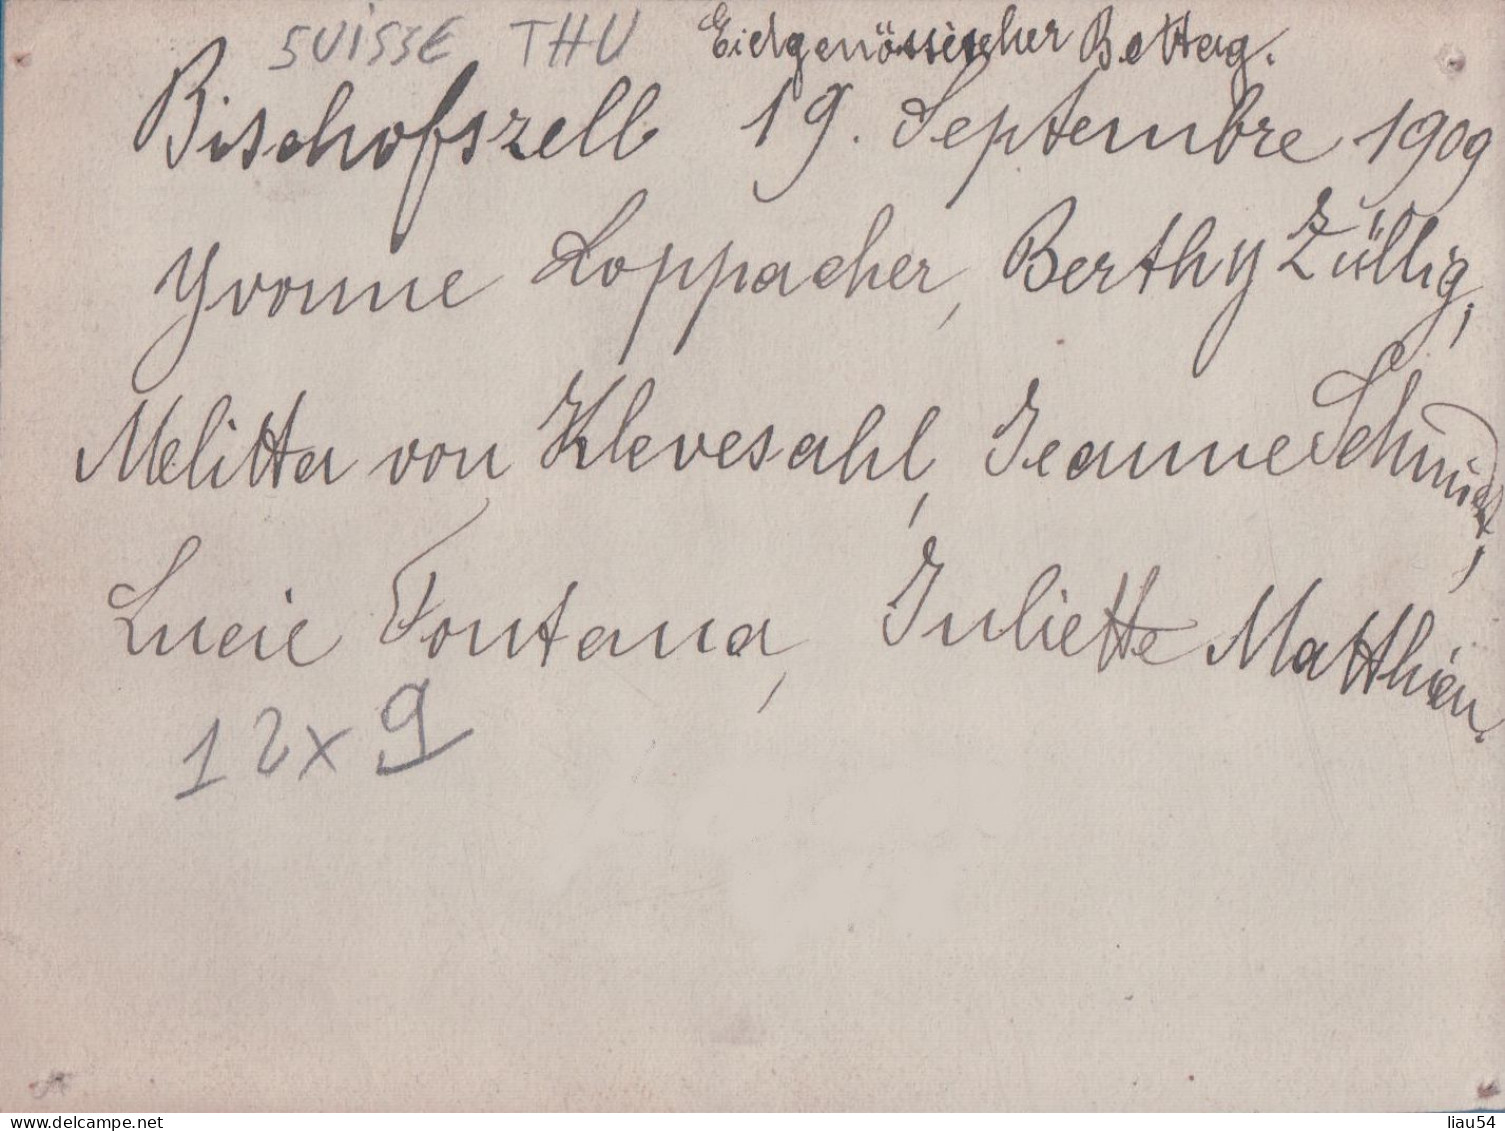 SUISSE THU Eidgenössischer Bettag.
Bischofszell 19. Septembre 1909
Yvonne Loppacher, Berthy Züllig,
Melitta von Klevesahl, Jeanne Schmid,
Lucie Fontana, Juliette Matthieu.
12x9
delcampe.net
liau54